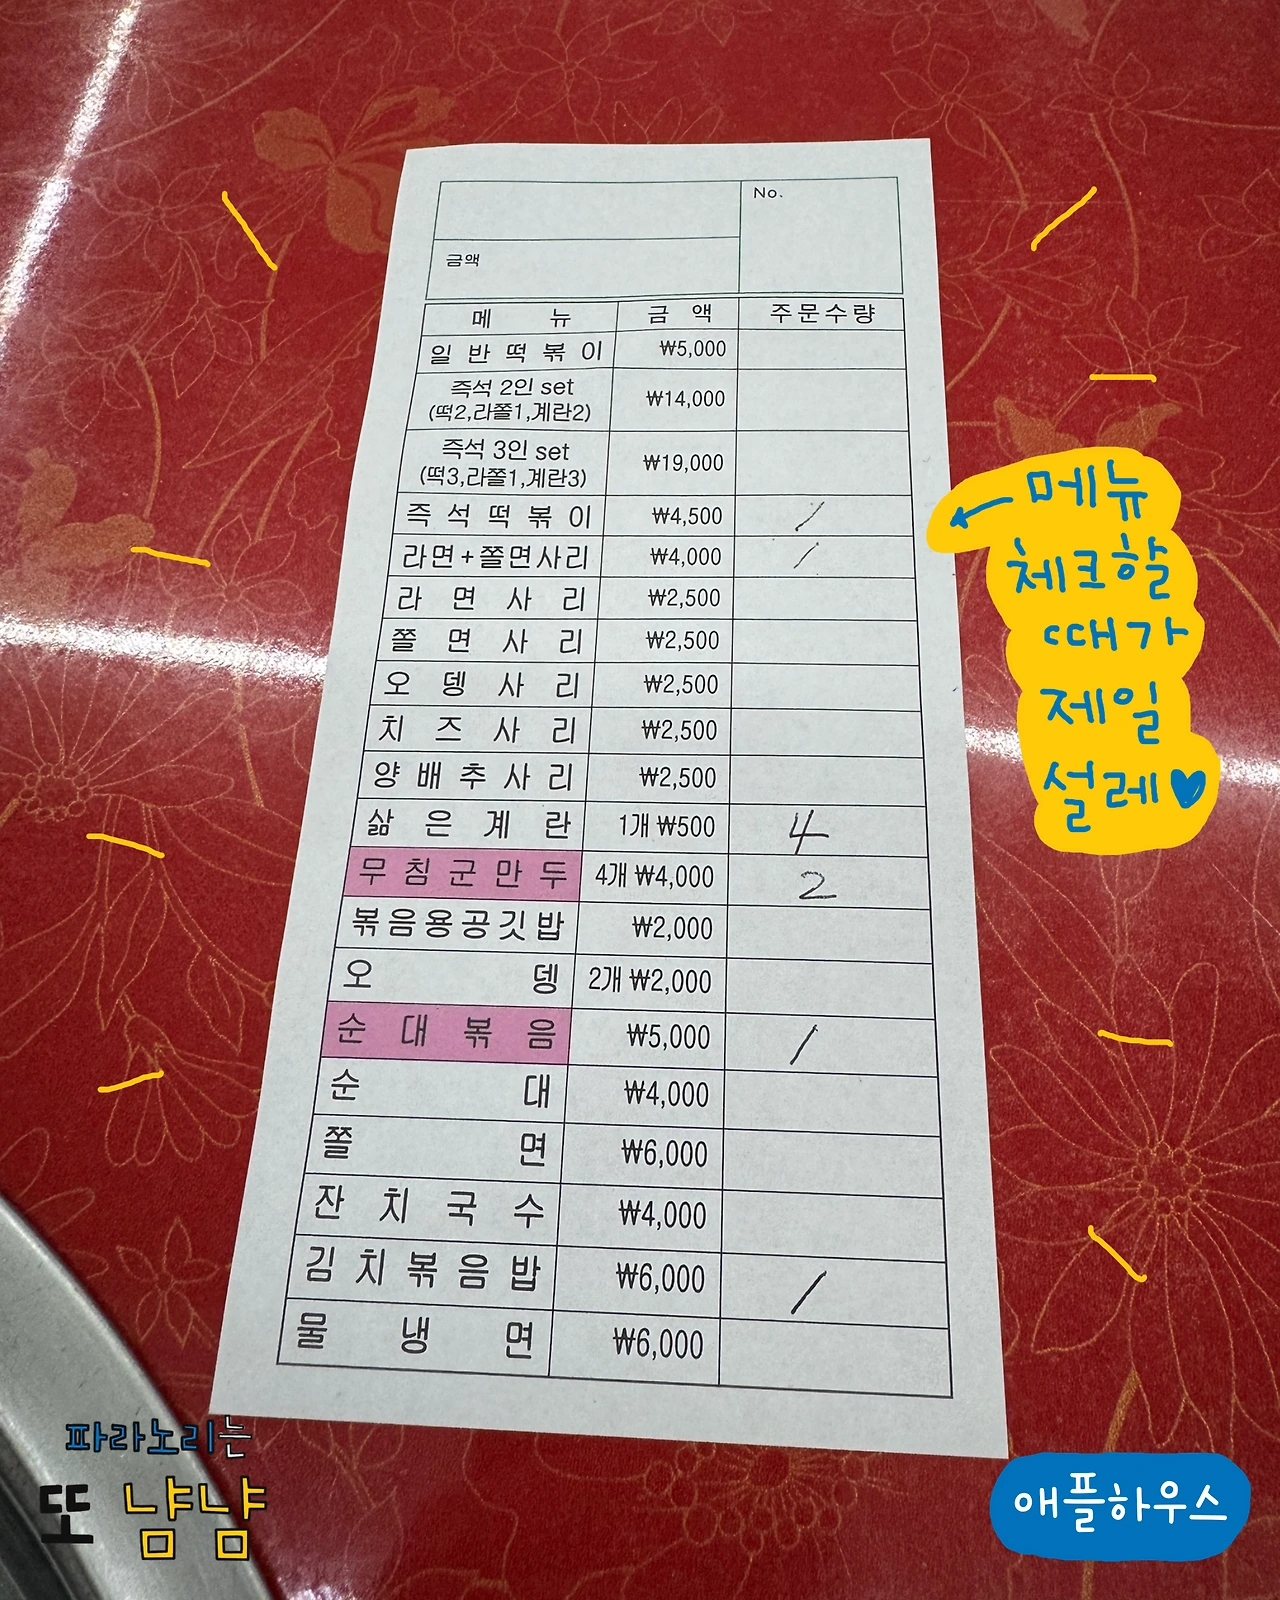 No.
금액
메뉴 금액 주문수량
일반떡볶이 ₩5,000
즉석 2인 set
(떡2,라쫄1,계란2) ₩14,000
즉석 3인 set
(떡3,라쫄1,계란3) ₩19,000
즉석떡볶이 ₩4,500 /
라면+쫄면사리 ₩4,000 /
라면사리 ₩2,500
쫄면사리 ₩2,500
오뎅사리 ₩2,500
치즈사리 ₩2,500
양배추사리 ₩2,500
삶은계란 1개 ₩500 4
무침군만두 4개 ₩4,000 2
볶음용공깃밥 ₩2,000
오뎅 2개 ₩2,000
순대볶음 ₩5,000 /
순대 ₩4,000
쫄면 ₩6,000
잔치국수 ₩4,000
김치볶음밥 ₩6,000 /
물냉면 ₩6,000
←메뉴
체크할
때가
제일
설레♥
파라노리는
또 냠냠
애플하우스